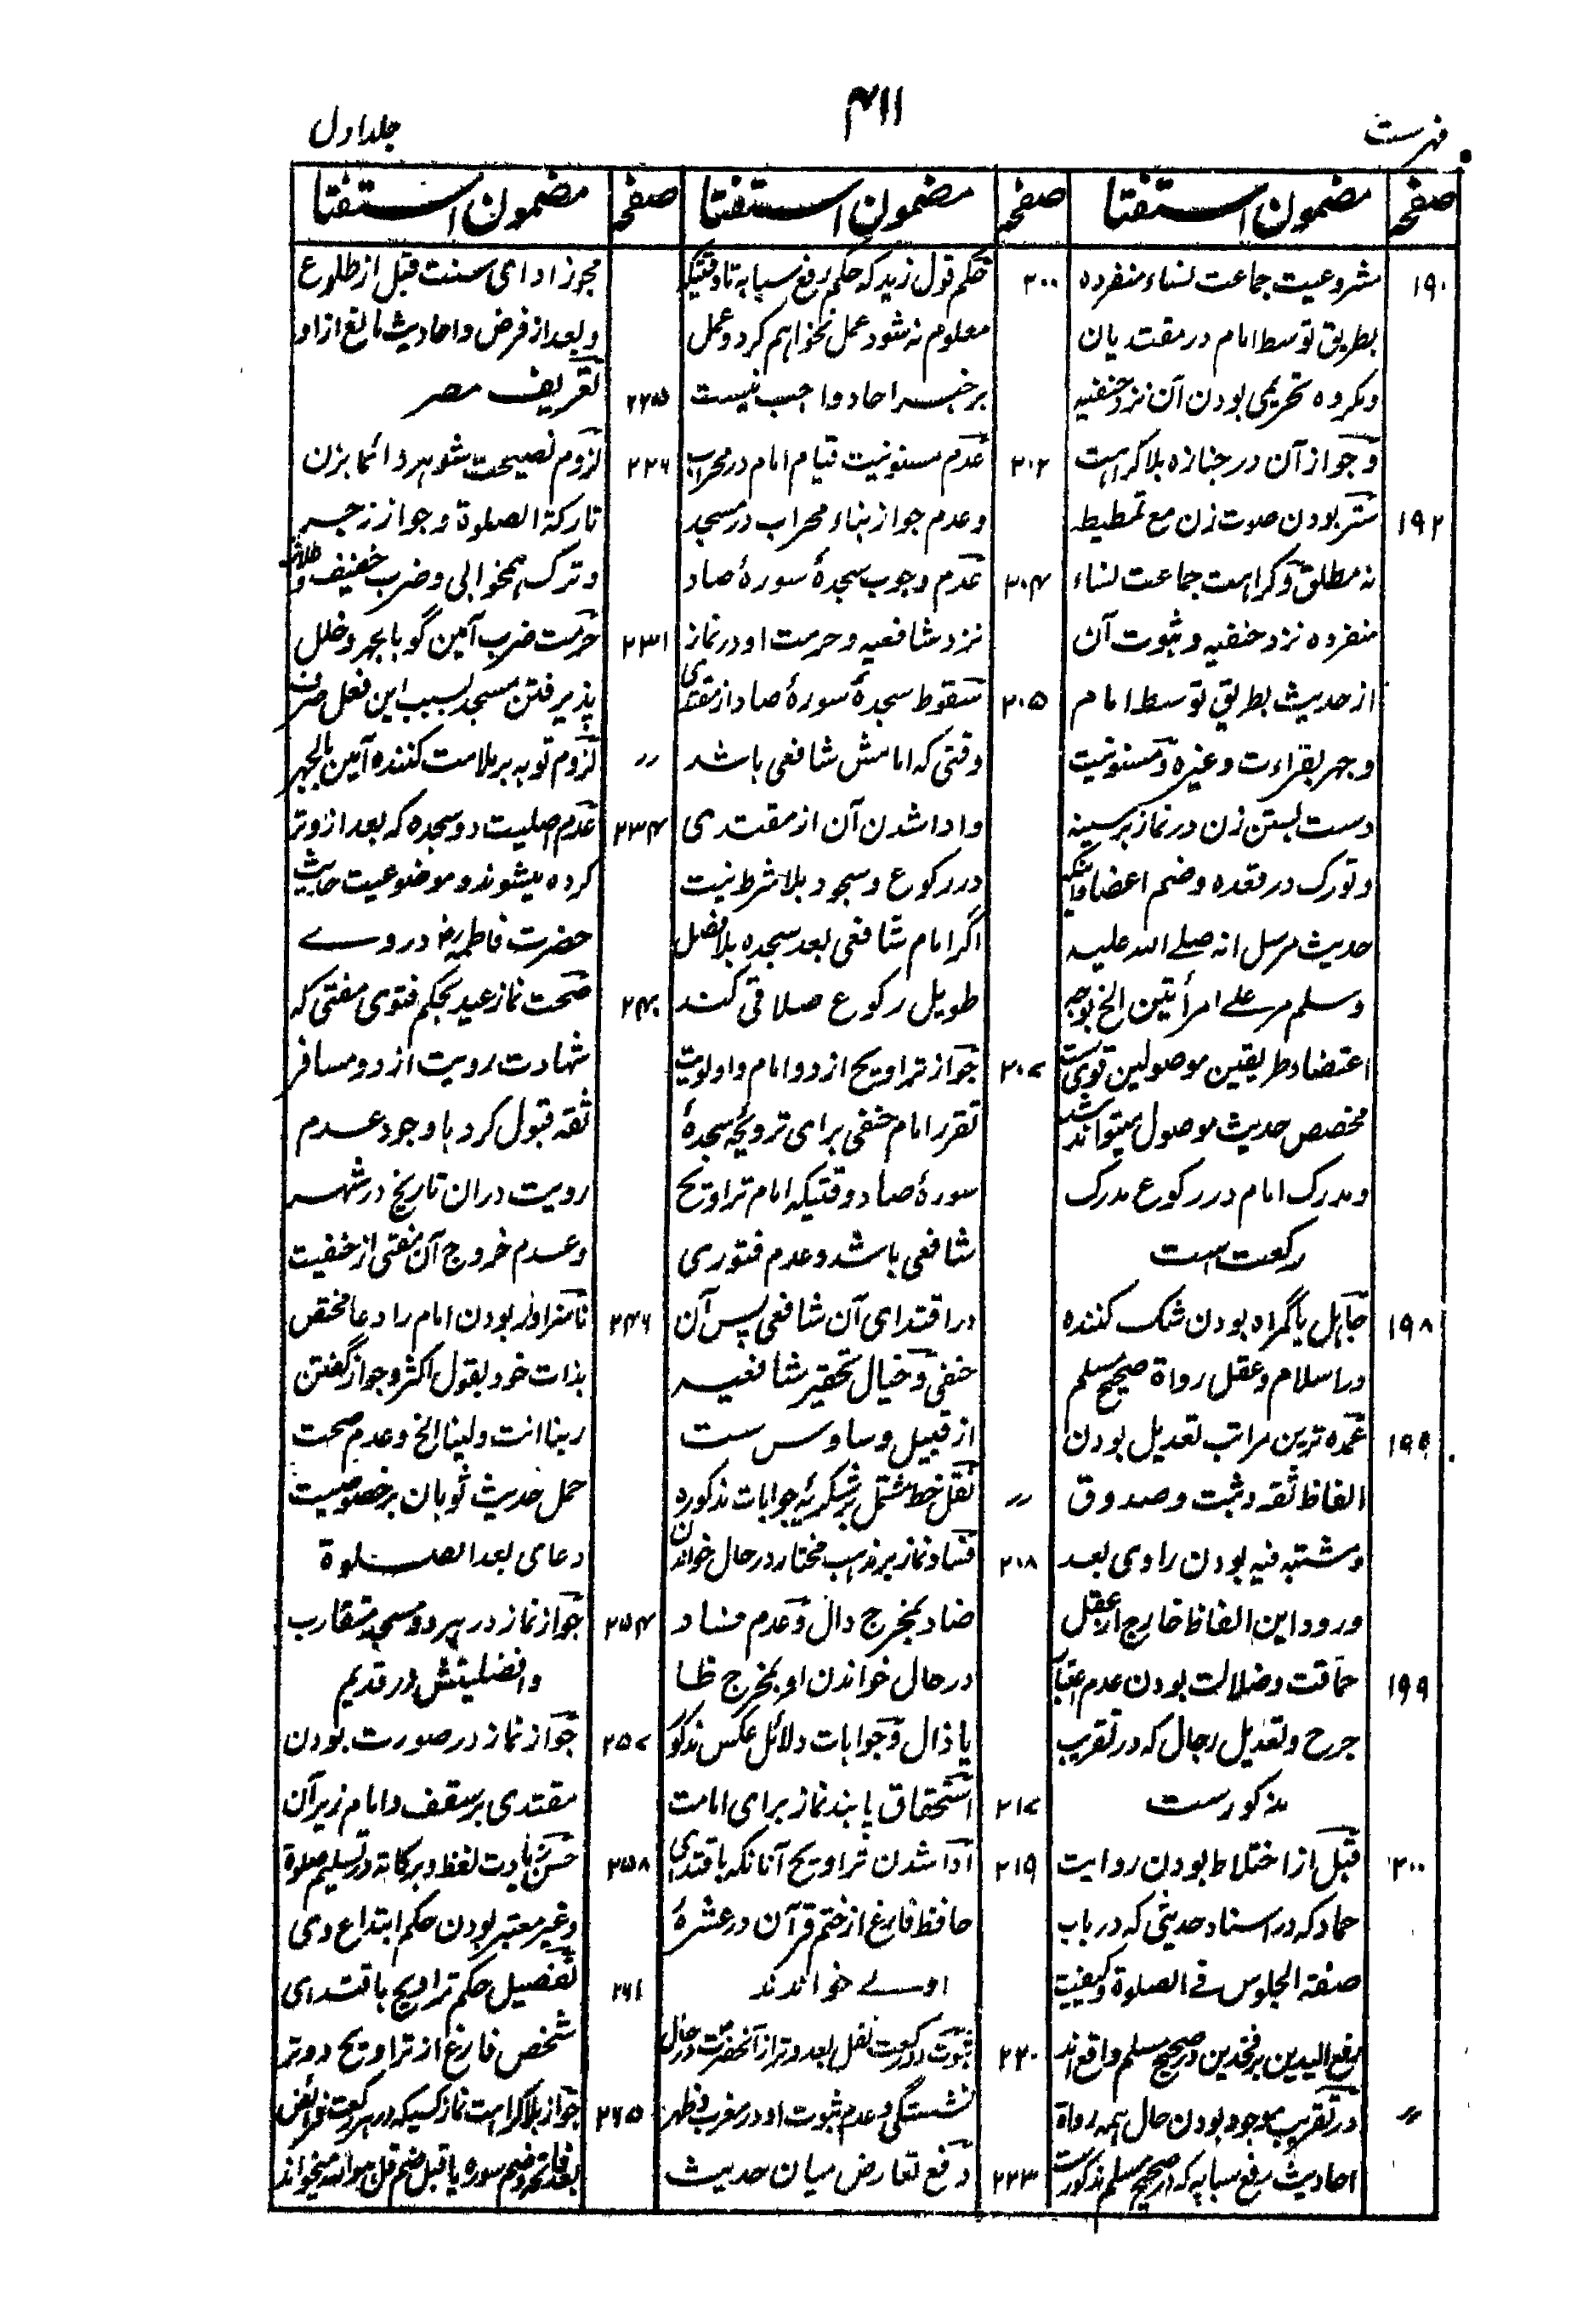 فہرست
۴۱۱
جلد اول
صفحہ
مضمون استفتا
صفحہ
مضمون استفتا
صفحہ
مضمون استفتا
۱۹۰ مشروعیت جماعت نساء منفرده
بطریق توسط امام در مقتدیان
ومکروه تحریمی بودن آن نزد حنفیه
وجواز آن در جنازه بلا کراہت
۱۹۲ ستر بودن صوت زن مع تمطیطہ
نہ مطلق وکراہت جماعت نساء
منفرده نزد حنفیه و ثبوت آن
از حدیث بطریق توسط امام
وجہر بقراءت وغیره ومسنونیت
دست بستن زن در نماز بر سینہ
وتورک در قعده وضم اعضا
حدیث مرسل انہ صلے اللہ علیہ
وسلم مر علے امرأتین الخ بوجہ
اعتضاد طریقین موصولین قوی ست
مخصص حدیث موصول میتواند شد
ومدرک امام در رکوع مدرک
رکعت است
۱۹۸ جاہل یا گمراه بودن شک کننده
در اسلام وعقل رواة صحیح مسلم
۱۹۹ عمده ترین مراتب تعدیل بودن
الفاظ ثقہ وثبت وصدوق
ومشتبہ فیہ بودن راوی بعد
ورود این الفاظ خارج از عقل
۱۹۹ حماقت وضلالت بودن عدم اعتبار
جرح وتعدیل رجال کہ در تقریب
مذکورست
۲۰۰ قبل از اختلاط بودن روایت
حماد کہ در اسناد حدیثی کہ در باب
صفة الجلوس فے الصلوة وکیفیت
رفع الیدین بر فخذین در صحیح مسلم واقع اند
〃 در تقریب موجود بودن حال ہمہ رواة
احادیث رفع سبابہ کہ در صحیح مسلم مذکورست
۲۰۰ حکم قول زید کہ حکم رفع سبابہ تا وقتیکہ
معلوم نہ شود عمل نخواہم کرد وعمل
بر خبر احاد واجب نیست
۲۰۲ عدم مسنونیت قیام امام در محراب
وعدم جواز بناء محراب در مسجد
۲۰۴ عدم وجوب سجدۂ سورۂ صاد
نزد شافعیہ وحرمت او در نماز
۲۰۵ سقوط سجدۂ سورۂ صاد از مقتدی
وقتی کہ امامش شافعی باشد
وادا شدن آن از مقتدی
در رکوع وسجود بلا شرط نیت
اگر امام شافعی بعد سجده بلا فصل
طویل رکوع صلاتی کند
۲۰۷ جواز تراویح از دو امام واولویت
تقرر امام حنفی برای ترویحہ سجدۂ
سورۂ صاد وقتیکہ امام تراویح
شافعی باشد وعدم فتوری
در اقتدای آن شافعی پس آن
حنفی وخیال تحقیر شافعیہ
از قبیل وساوس ست
〃 نقل خط مشتمل بر شکریۂ جوابات مذکوره
۲۰۸ فساد نماز بر مذہب مختار در حال خواندن
ضاد بمخرج دال وعدم فساد
در حال خواندن او بمخرج ظا
یا ذال وجوابات دلائل عکس مذکور
۲۱۷ استحقاق پابند نماز برای امامت
۲۱۹ ادا شدن تراویح آنانکہ باقتدای
حافظ فارغ از ختم قرآن در عشرۂ
اوے خواندند
۲۲۰ ثبوت دو رکعت نفل بعد وتر از آنحضرت در حال
نشستگی وعدم ثبوت او در مغرب وظہر
۲۲۳ دفع تعارض میان حدیث
مجوز ادای سنت قبل از طلوع
وبعد از فرض واحادیث مانع از او
۲۲۵ تعریف مصر
۲۲۶ لزوم نصیحت شوہر دائما بزن
تارکة الصلوة وجواز زجر
وترک ہمخوابی وضرب خفیف وطلاقش
۲۳۱ حرمت ضرب آمین گو بالجہر وخلل
پذیرفتن مسجد بسبب این فعل
〃 لزوم توبہ بر ملامت کننده آمین بالجہر
۲۳۴ عدم اصلیت دو سجده کہ بعد از وتر
کرده میشوند وموضوعیت حدیث
حضرت فاطمہ رض در وے
۲۴۰ صحت نماز عید بحکم فتوی مفتی کہ
شہادت رویت از دو مسافر
ثقہ قبول کرد با وجود عدم
رویت دران تاریخ در شہر
وعدم خروج آن مفتی از حنفیت
۲۴۶ نا سزاوار بودن امام را دعا مختص
بذات خود بقول اکثر وجواز گفتن
ربنا انت ولینا الخ وعدم صحت
حمل حدیث ثوبان بر خصوصیت
دعای بعد الصلوة
۲۵۴ جواز نماز در ہر دو مسجد متقارب
وافضلیتش در قدیم
۲۵۷ جواز نماز در صورت بودن
مقتدی بر سقف وامام زیر آن
۲۵۸ حسن زیادت لفظ وبرکاتہ در تسلیم صلوة
وغیر معتبر بودن حکم ابتداع وی
۲۶۱ تفصیل حکم تراویح باقتدای
شخص فارغ از تراویح ووتر
۲۶۵ جواز بلا کراہت نماز کسیکہ در ہر رکعت فرائض
بعد فاتحہ وضم سوره یا قبل ضم قل ہو اللہ میخواند